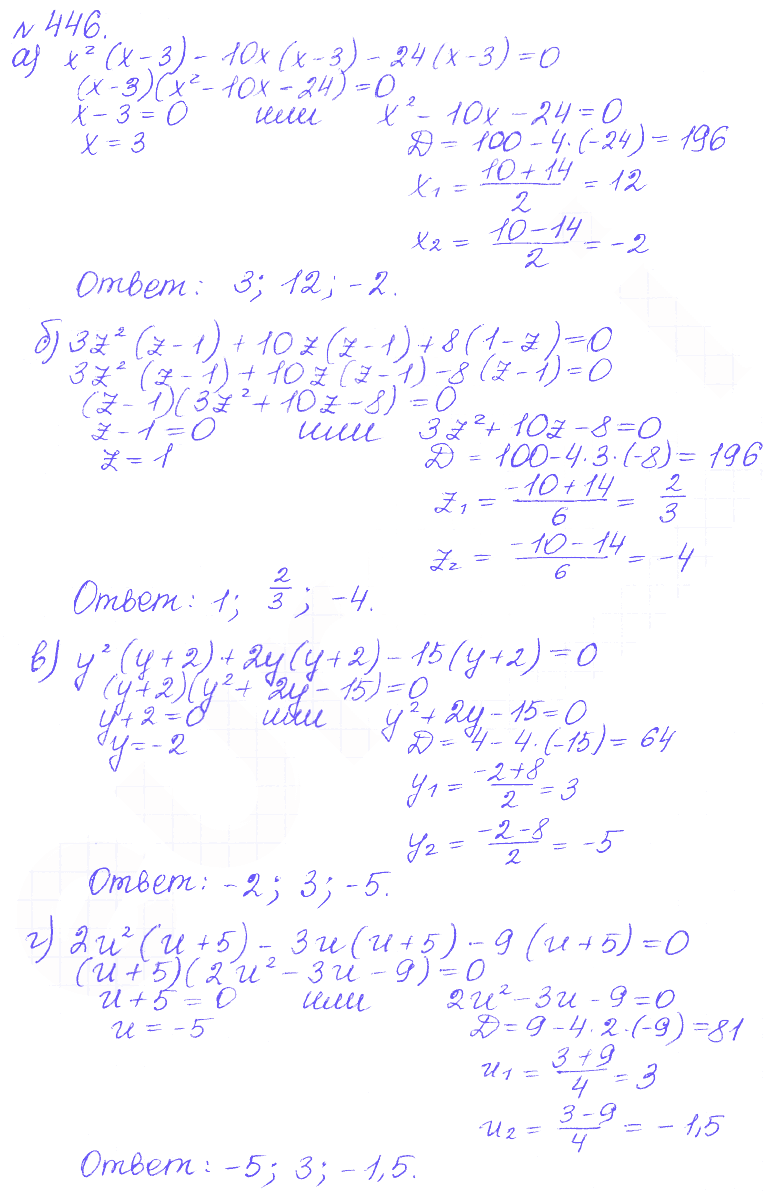 № 446.
а) x² (x − 3) − 10x (x − 3) − 24 (x − 3) = 0
(x − 3)(x² − 10x − 24) = 0
x − 3 = 0 или x² − 10x − 24 = 0
x = 3 D = 100 − 4·(−24) = 196
x₁ = (10 + 14)/2 = 12
x₂ = (10 − 14)/2 = −2
Ответ: 3; 12; −2.
б) 3z² (z − 1) + 10z (z − 1) + 8 (1 − z) = 0
3z² (z − 1) + 10z (z − 1) − 8 (z − 1) = 0
(z − 1)(3z² + 10z − 8) = 0
z − 1 = 0 или 3z² + 10z − 8 = 0
z = 1 D = 100 − 4·3·(−8) = 196
z₁ = (−10 + 14)/6 = 2/3
z₂ = (−10 − 14)/6 = −4
Ответ: 1; 2/3; −4.
в) y² (y + 2) + 2y (y + 2) − 15 (y + 2) = 0
(y + 2)(y² + 2y − 15) = 0
y + 2 = 0 или y² + 2y − 15 = 0
y = −2 D = 4 − 4·(−15) = 64
y₁ = (−2 + 8)/2 = 3
y₂ = (−2 − 8)/2 = −5
Ответ: −2; 3; −5.
г) 2u² (u + 5) − 3u (u + 5) − 9 (u + 5) = 0
(u + 5)(2u² − 3u − 9) = 0
u + 5 = 0 или 2u² − 3u − 9 = 0
u = −5 D = 9 − 4·2·(−9) = 81
u₁ = (3 + 9)/4 = 3
u₂ = (3 − 9)/4 = −1,5
Ответ: −5; 3; −1,5.